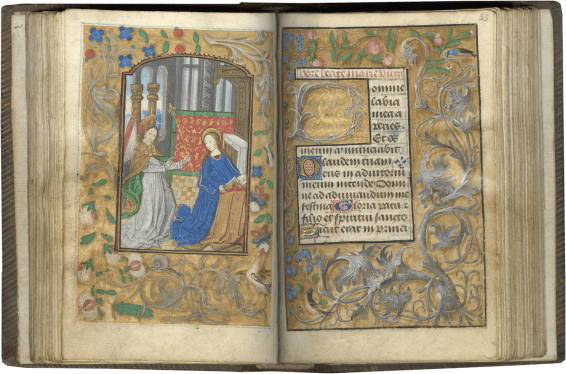 omine
labia
mea a
peries.
Et os
meum annunciabit
laudem tuam
eus in adiutoriu
meum intende Domi
ne ad adiuvandum me
festina Gloria patri
filio et spiritui sancto
Sicut erat in princi